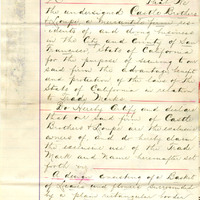 the undersigned Castle Brothers
& Loupe a mercantile firm res-
idents of and doing business
in The City and County of San
Francisco State of California
for the purpose of securing
and from the advantage
and protection of the laws of the
State of California in relation
to Trade Marks
Do Hereby Certify and declare
that our said firm of Castle
Brothers & Loupe are the exclusive
owners of, and do hereby claim
the exclusive use of the Trade
Mark and Name hereinafter set
forth
A design consisting of a Basket
of Grapes and flowers surrounded
by a plain rectangular border